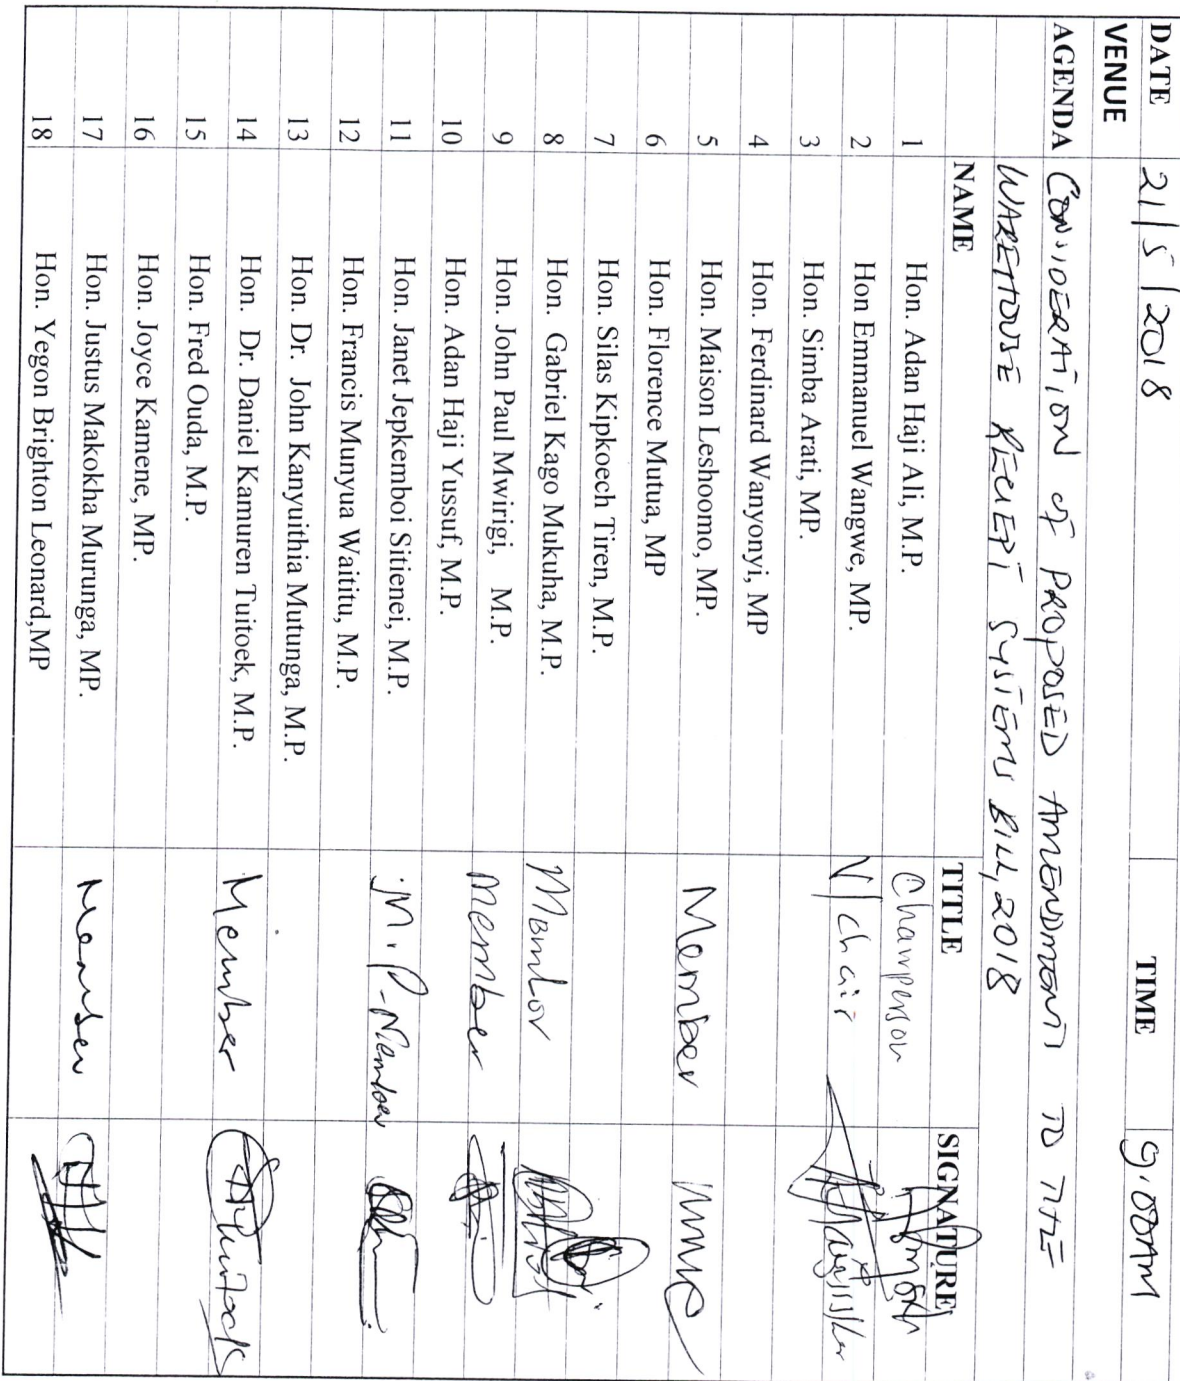 DATE 21/5/2018 TIME 9.00AM
VENUE
AGENDA CONSIDERATION of PROPOSED AMENDMENTS TO THE
WAREHOUSE RECEIPT SYSTEMS BILL, 2018
NAME TITLE SIGNATURE
1 Hon. Adan Haji Ali, M.P. Chairperson
2 Hon Emmanuel Wangwe, MP. V/chair
3 Hon. Simba Arati, MP.
4 Hon. Ferdinard Wanyonyi, MP
5 Hon. Maison Leshoomo, MP. Member
6 Hon. Florence Mutua, MP
7 Hon. Silas Kipkoech Tiren, M.P.
8 Hon. Gabriel Kago Mukuha, M.P. Member
9 Hon. John Paul Mwirigi, M.P. Member
10 Hon. Adan Haji Yussuf, M.P.
11 Hon. Janet Jepkemboi Sitienei, M.P. M.P-Member
12 Hon. Francis Munyua Waititu, M.P.
13 Hon. Dr. John Kanyuithia Mutunga, M.P.
14 Hon. Dr. Daniel Kamuren Tuitoek, M.P. Member
15 Hon. Fred Ouda, M.P.
16 Hon. Joyce Kamene, MP.
17 Hon. Justus Makokha Murunga, MP. Member
18 Hon. Yegon Brighton Leonard,MP